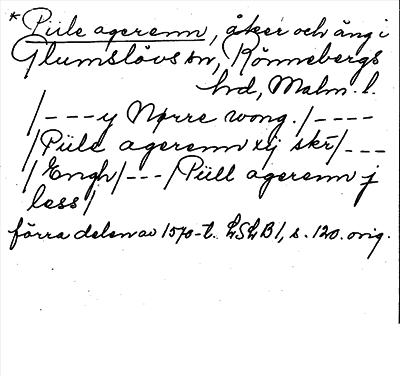 * Piile agerenn, åker och äng i
Glumslövs sn, Rönnebergs
hd, Malm. l.
/---y Nørre wong./----
/Piile agerenn xij skr̄/---
/Engh/---/Piill agerenn j
less/
förra delen av 1570-t. LSLB1, s. 120. orig.